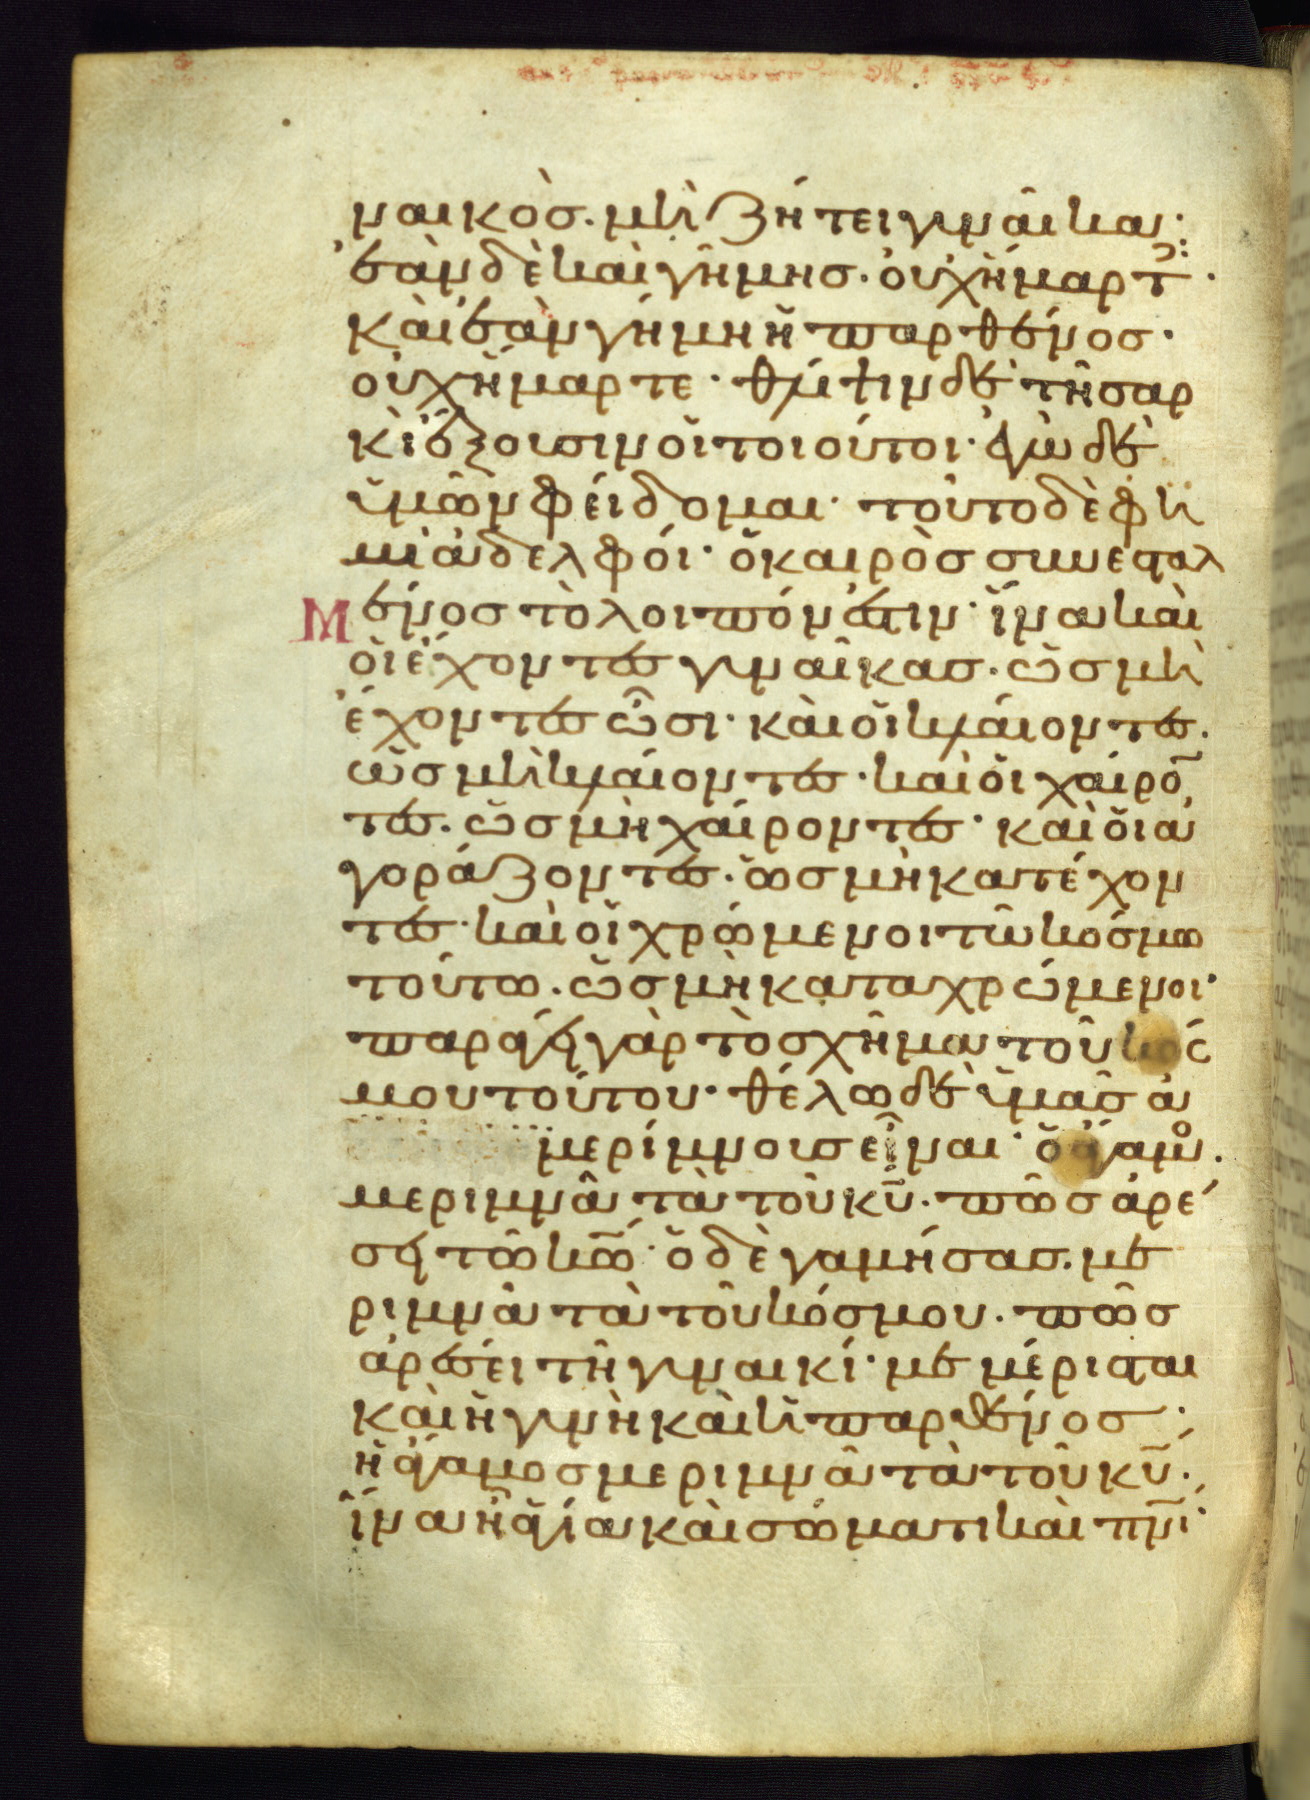 ναικὸσ. μὴ ζήτει γυναῖκα:
ἐὰν δὲ καὶ γήμησ. οὐχ ἥμαρτ.
καὶ ἐὰν γήμη ἡ παρθένος.
οὐχ ἥμαρτε. θλίψιν δὲ τῆ σαρ
κὶ ἕξουσιν οἱ τοιοῦτοι. ἐγὼ δὲ
ὑμῶν φείδομαι. τοῦτο δέ φη
μι ἀδελφοί. ὁ καιρὸσ συνεσταλ
Μένοσ τὸ λοιπόν ἐστιν. ἵνα καὶ
οἱ ἔχοντες γυναῖκασ. ὡσ μὴ
ἔχοντες ὦσι. καὶ οἱ κλαίοντες.
ὡσ μὴ κλαίοντες. καὶ οἱ χαίρο̄
τες. ὡσ μὴ χαίροντες. καὶ οἱ α
γοράζοντες. ὡσ μὴ κατέχον
τες. καὶ οἱ χρώμενοι τῶ κόσμω
τούτω. ὡσ μὴ καταχρώμενοι.
παράγει γὰρ τὸ σχῆμα τοῦ κόσ
μου τούτου. θέλω δὲ ὑμᾶσ ἀ
μερίμνουσ εἶναι. ὁ ἄγαμο.
μεριμνᾶ τὰ τοῦ κῡ. πῶσ ἀρέ
σει τῶ κω̄. ὁ δὲ γαμήσασ. με
ριμνᾶ τὰ τοῦ κόσμου. πῶσ
ἀρέσει τῆ γυναικί. μεμέρισται
καὶ ἡ γυνὴ καὶ ἡ παρθένοσ;
ἡ ἄγαμοσ μεριμνᾶ τὰ τοῦ κῡ.
ἵνα ἦ ἁγία καὶ σώματι καὶ πν̄ι.